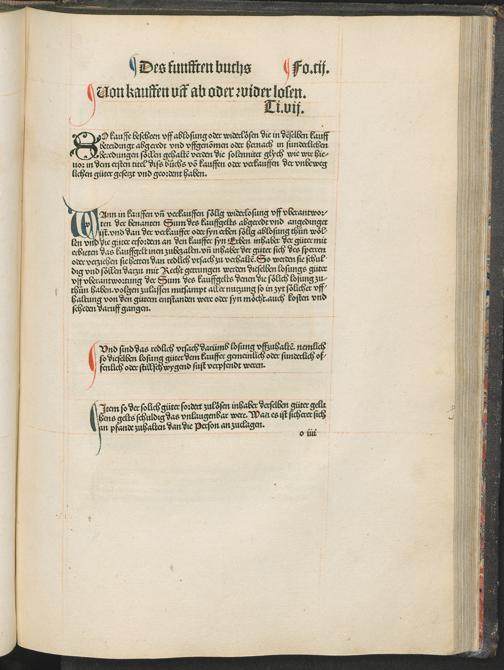 Des funfften buchs Fo.cij.
Von kauffen vff ab oder wider losen.
Ti.vij.
SO kauffe bescheen vff ablosung oder widerlösen die in dẽselben kauff
beredunge abgeredt vnd vffgenomen oder hernach in sunderlichen
beredungen söllen gehaltẽ werden die solenniter glych wie wir hie-
uor in dem ersten titel diss bůchs võ kauffen oder verkauffen der vnbeweg
lichen güter gesetzt vnd geordent haben.
WAnn in kauffen vñ verkauffen sölig widerlosung vff vberantwor-
ten der benanten Sum des kauffgelts abgeredt vnd angedinget
ist. vnd dan der verkauffer oder syn erben sölig ablösung thůn wöl-
len vnd die güter erfordern an den kauffer syn Erben inhaber der güter mit
erbieten das kauffgelt inen zubezalen. vñ inhaber der güter sich des sperren
oder verziehen sie hetten dan redlich vrsach zu verhaltẽ. So werden sie schul-
dig vnd söllen darzu mit Recht getrungen werden dieselben losungs güter
vff vberantwortung der Sum des kauffgelts denen die sölich losung zu-
thůn haben. volgen zulassen mitsampt aller nutzung so in zyt sölicher vff-
haltung von den gütern entstanden were oder syn möcht. auch kosten vnd
scheden daruff gangen.
Vnd sind das redlich vrsach darumb losung vffzuhaltẽ. nemlich
so dieselben losung güter dem kauffer gemeinlich oder sunderlich of-
fenlich oder stillschwygend sust verpfendt weren.
Item so der solich güter fordert zulösen inhaber derselben güter gelt
lihens gelts schuldig das vnlaugenbar were. Wan es ist sicherer sich
an pfande zuhalten dan die Person anzuclagen.
o iiii